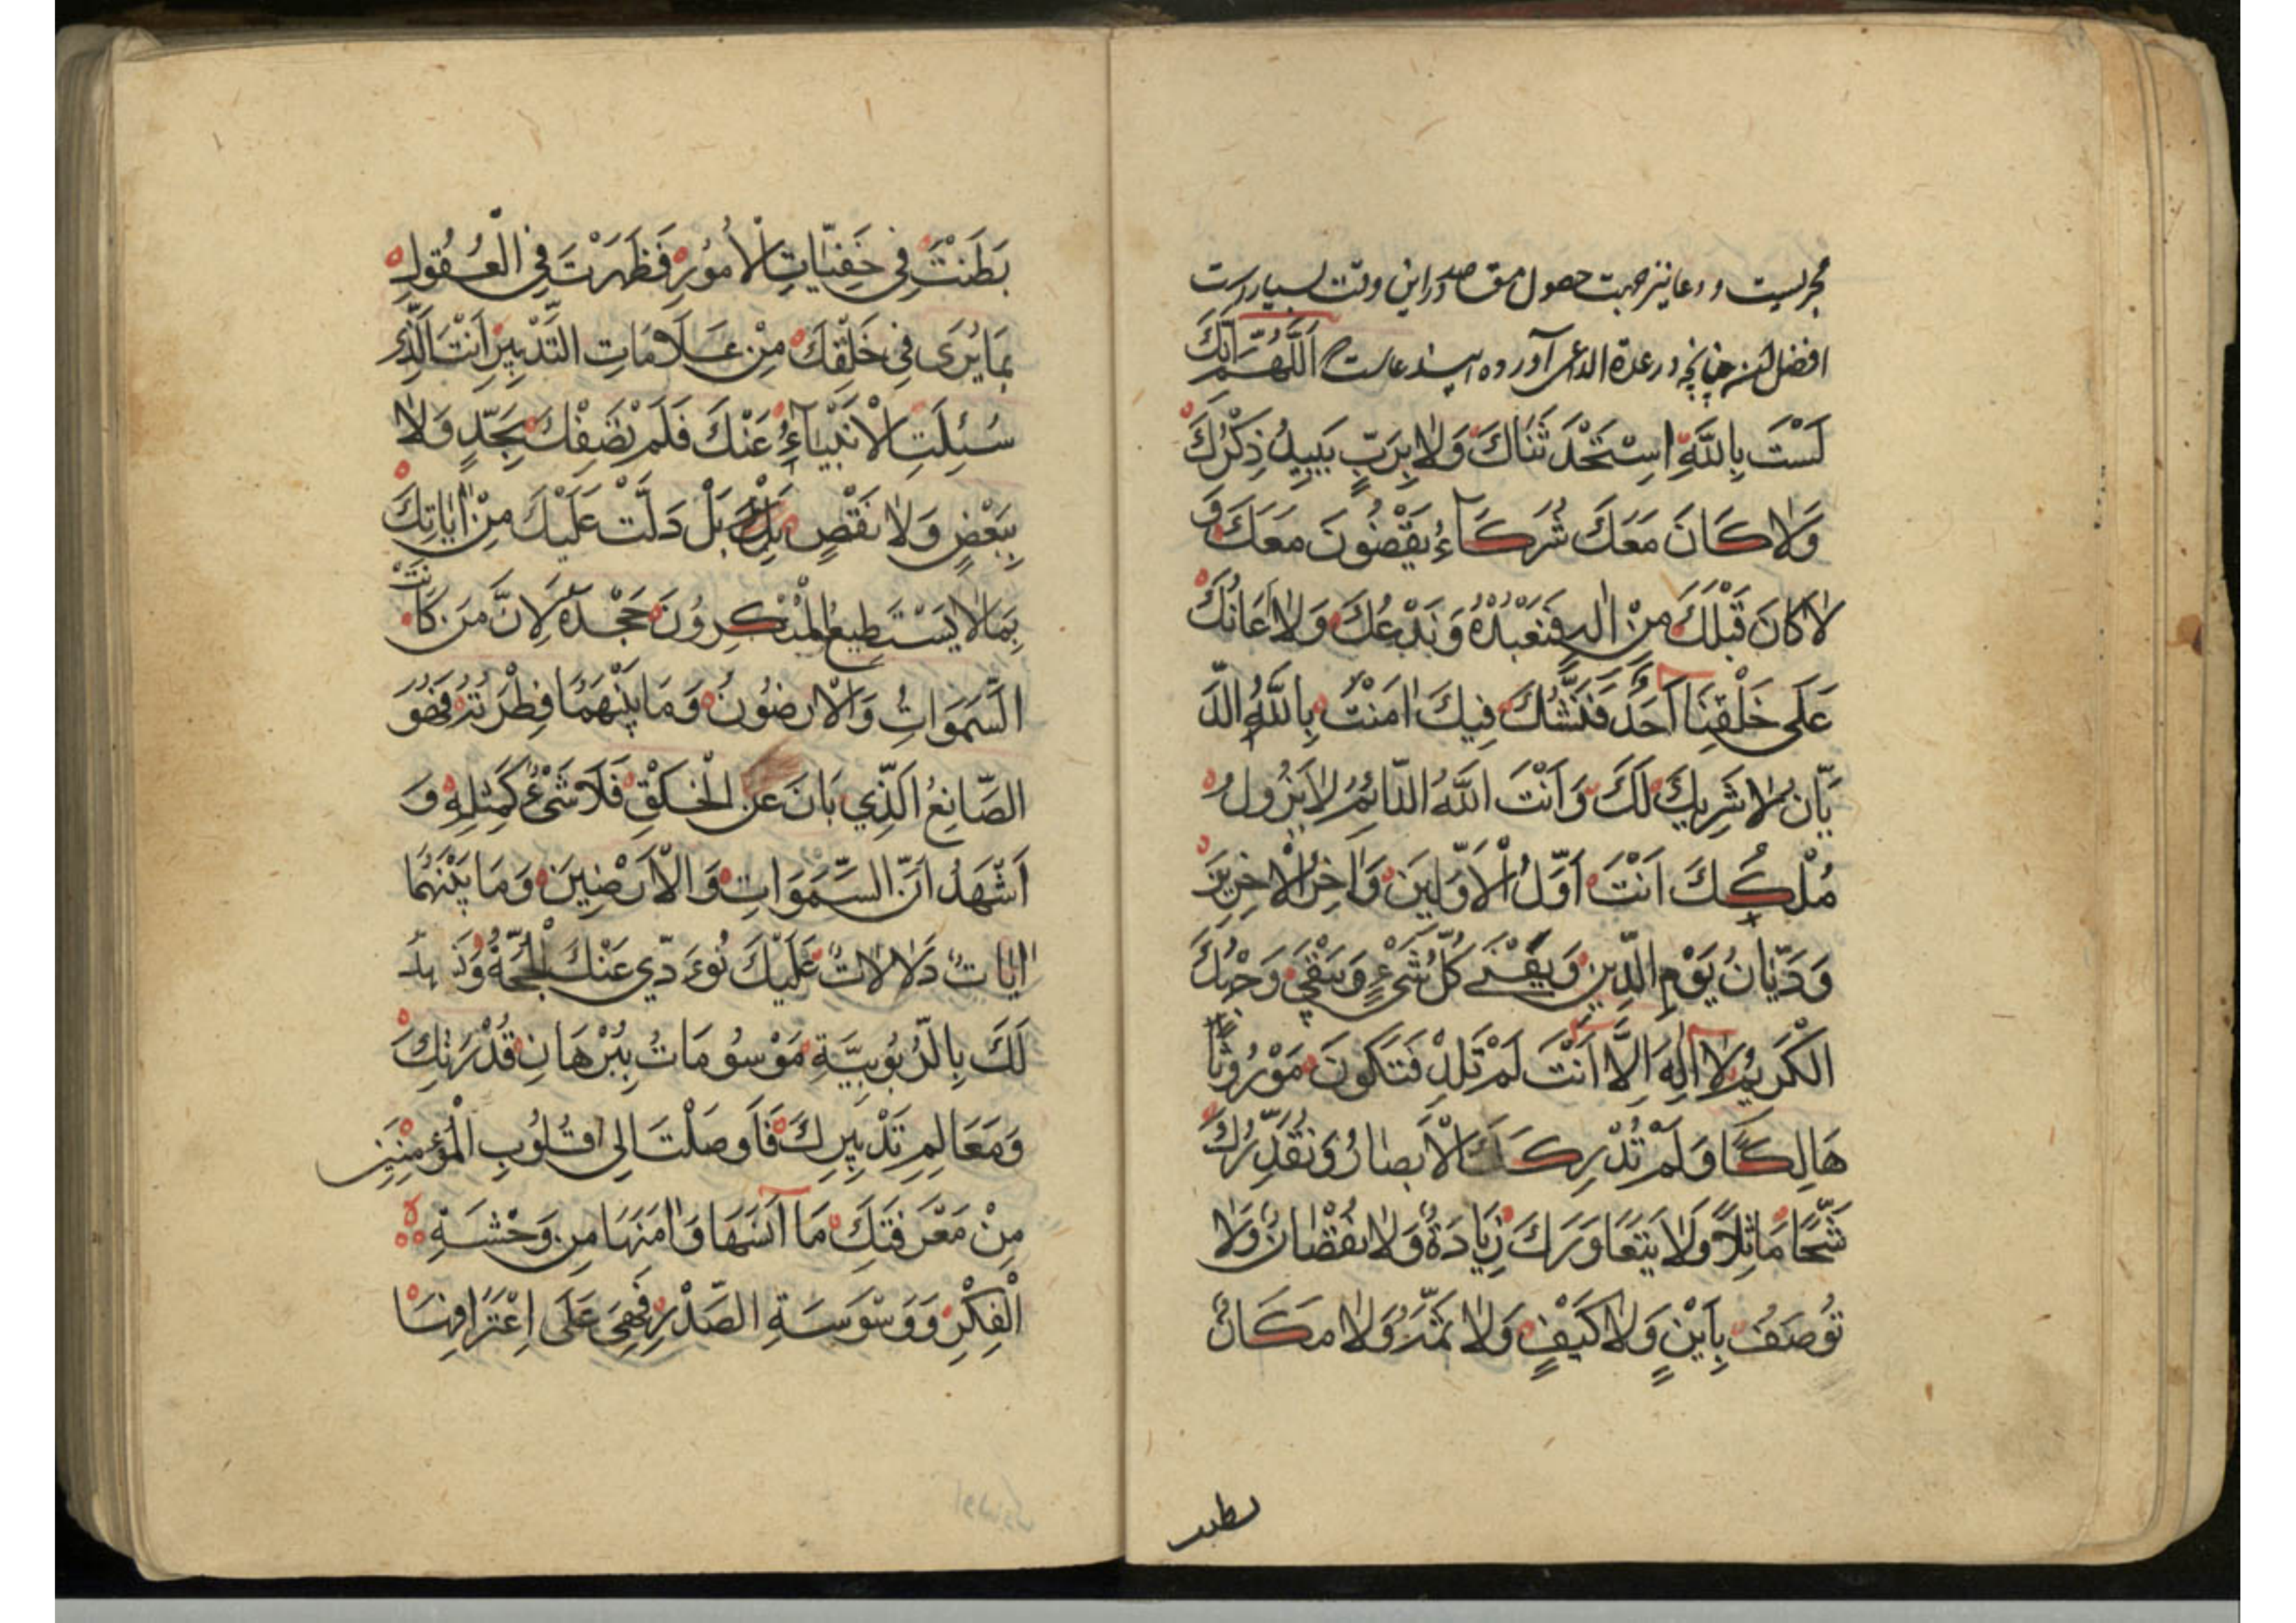 مجربیست و دعا نیز جهت حصول مقاصد در این وقت بسیار است
افضل چنانچه در عدة الداعی آورده این دعاست اَللّٰهُمَّ اِنَّكَ
لَسْتَ بِاللّٰهِ اسْتَحْدَثْنَاكَ وَلَا بِرَبٍّ يَبِيدُ ذِكْرُكَ
وَلَا كَانَ مَعَكَ شُرَكَاءُ يَقْضُونَ مَعَكَ وَ
لَا كَانَ قَبْلَكَ مِنْ اِلٰهٍ فَنَعْبُدُهُ وَنَدَعُكَ وَلَا اَعَانَكَ
عَلَى خَلْقِنَا اَحَدٌ فَنَشُكَّ فِيكَ اٰمَنْتُ بِاللّٰهِ الدَّ
يَّانِ لَا شَرِيكَ لَكَ وَاَنْتَ اللّٰهُ الدَّائِمُ لَا يَزُولُ
مُلْكُكَ اَنْتَ اَوَّلُ الْاَوَّلِينَ وَاٰخِرُ الْاٰخِرِينَ
وَدَيَّانُ يَوْمِ الدِّينِ وَيَفْنٰى كُلُّ شَيْءٍ وَيَبْقٰى وَجْهُكَ
الْكَرِيمُ لَا اِلٰهَ اِلَّا اَنْتَ لَمْ تَلِدْ فَتَكُونَ مَوْرُوثًا
هَالِكًا وَلَمْ تُدْرِكْكَ الْاَبْصَارُ وَنُقَدِّرُكَ
شَبَحًا مَاثِلًا وَلَا يَتَعَاوَرُكَ زِيَادَةٌ وَلَا نُقْصَانٌ وَلَا
تُوصَفُ بِاَيْنٍ وَلَا كَيْفٍ وَلَا ثَمَّ وَلَا مَكَانٍ
بطنت
بَطَنْتَ فِي خَفِيَّاتِ الْاُمُورِ فَظَهَرْتَ فِي الْعُقُولِ
بِمَا يُرَى فِي خَلْقِكَ مِنْ عَلَامَاتِ التَّدْبِيرِ اَنْتَ الَّذِي
سُئِلَتِ الْاَنْبِيَاءُ عَنْكَ فَلَمْ تَصِفْكَ بِحَدٍّ وَلَا
بِبَعْضٍ وَلَا نَقْصٍ بَلْ دَلَّتْ عَلَيْكَ مِنْ اٰيَاتِكَ
بِمَا لَا يَسْتَطِيعُ الْمُنْكِرُونَ جَحْدَهُ لِاَنَّ مَنْ كَانَتْ
السَّمَوَاتُ وَالْاَرَضُونَ وَمَا بَيْنَهُمَا فِطْرَتَهُ فَهُوَ
الصَّانِعُ الَّذِي بَانَ عَنِ الْخَلْقِ فَلَا شَيْءَ كَمِثْلِهِ وَ
اَشْهَدُ اَنَّ السَّمَوَاتِ وَالْاَرَضِينَ وَمَا بَيْنَهُمَا
اٰيَاتٌ دَلَالَاتٌ عَلَيْكَ تُوءَدِّي عَنْكَ الْحُجَّةَ
لَكَ بِالرُّبُوبِيَّةِ مَوْسُومَاتٌ بِبُرْهَانِ قُدْرَتِكَ
وَمَعَالِمِ تَدْبِيرِكَ فَاَوْصَلْتَ اِلٰى قُلُوبِ الْمُؤْمِنِينَ
مِنْ مَعْرِفَتِكَ مَا اٰنَسَهَا وَاٰمَنَهَا مِنْ وَحْشَةِ
الْفِكْرِ وَوَسْوَسَةِ الصَّدْرِ فَهِيَ عَلَى اِعْتِرَافِهَا